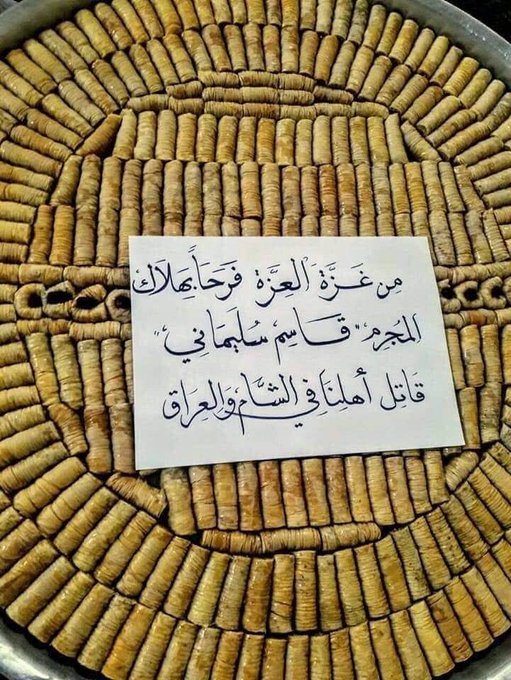 من غَزَّة العِزة فَرَحَاً بِهَلاك
المُجرم " قَاسِم سُليمَاني "
قَاتِل أهلِنَا في الشَّام وَالعِراق